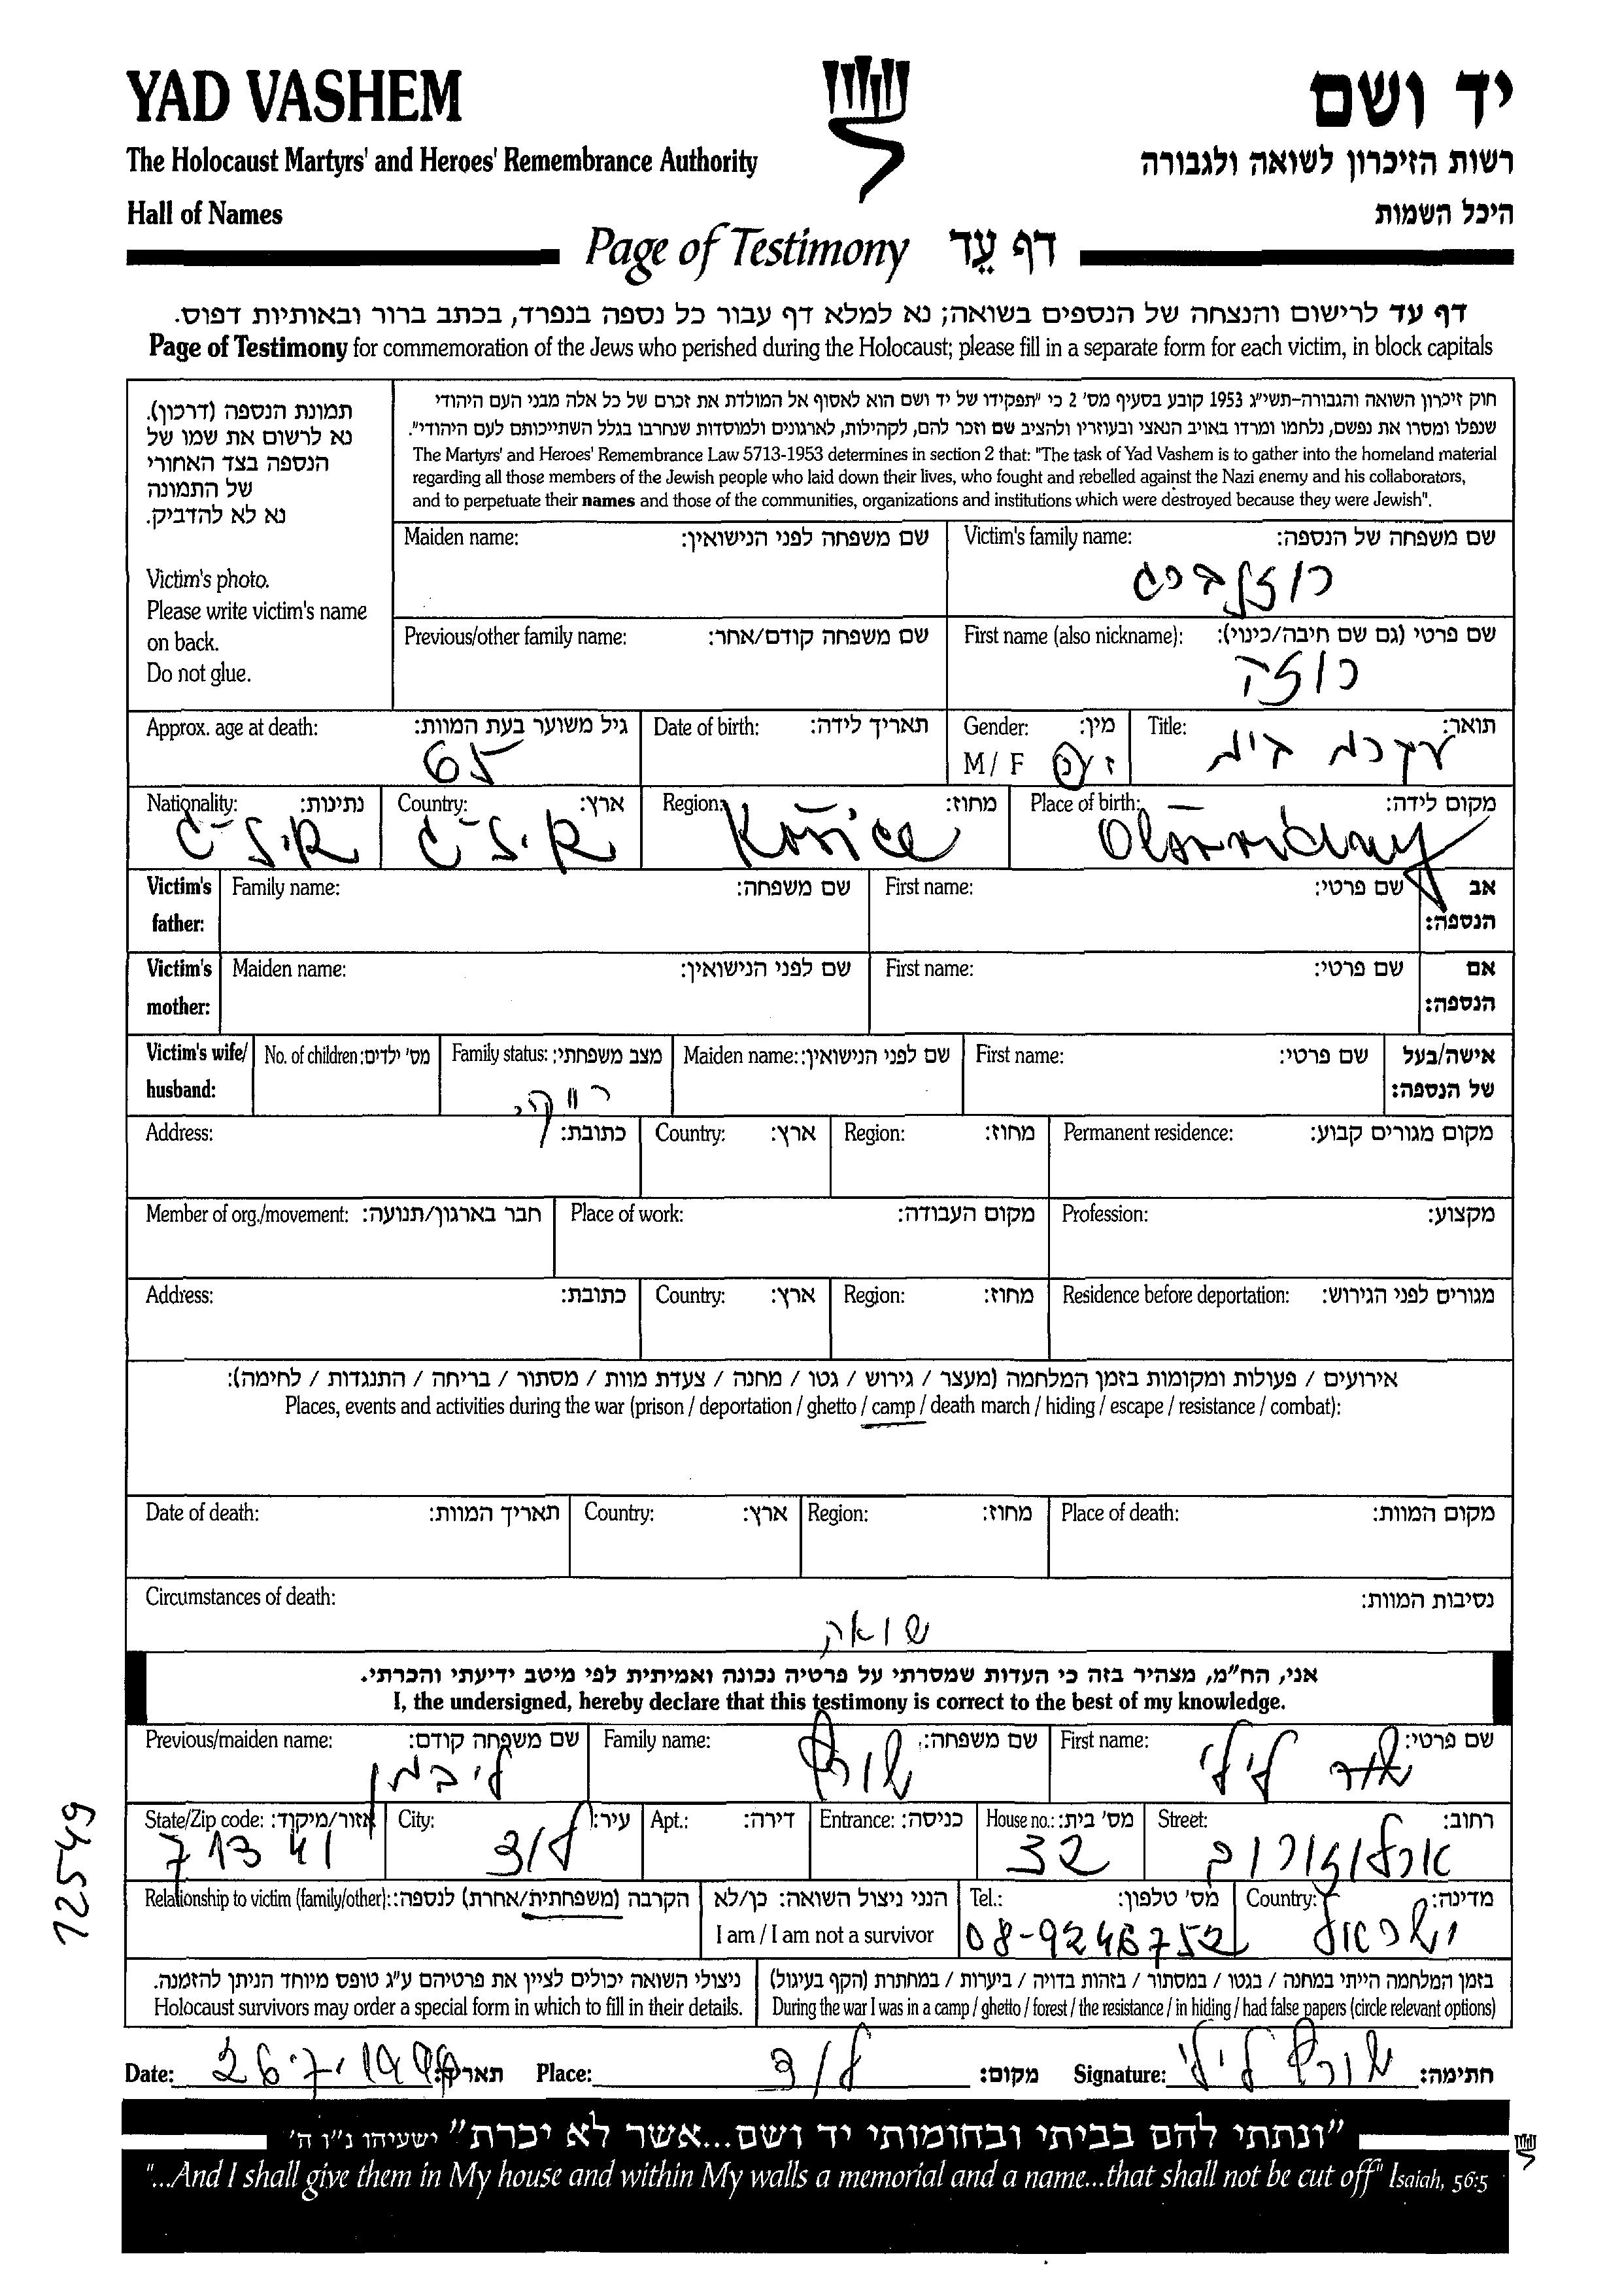 YAD VASHEM
יד ושם
The Holocaust Martyrs' and Heroes' Remembrance Authority
רשות הזיכרון לשואה ולגבורה
Hall of Names
היכל השמות
Page of Testimony דף עֵד
דף עד לרישום והנצחה של הנספים בשואה; נא למלא דף עבור כל נספה בנפרד, בכתב ברור ובאותיות דפוס.
Page of Testimony for commemoration of the Jews who perished during the Holocaust; please fill in a separate form for each victim, in block capitals
תמונת הנספה (דרכון).
נא לרשום את שמו של
הנספה בצד האחורי
של התמונה
נא לא להדביק.
Victim's photo.
Please write victim's name
on back.
Do not glue.
חוק זיכרון השואה והגבורה-תשי"ג 1953 קובע בסעיף מס' 2 כי "תפקידו של יד ושם הוא לאסוף אל המולדת את זכרם של כל אלה מבני העם היהודי
שנפלו ומסרו את נפשם, נלחמו ומרדו באויב הנאצי ובעוזריו ולהציב שם וזכר להם, לקהילות, לארגונים ולמוסדות שנחרבו בגלל השתייכותם לעם היהודי".
The Martyrs' and Heroes' Remembrance Law 5713-1953 determines in section 2 that: "The task of Yad Vashem is to gather into the homeland material
regarding all those members of the Jewish people who laid down their lives, who fought and rebelled against the Nazi enemy and his collaborators,
and to perpetuate their names and those of the communities, organizations and institutions which were destroyed because they were Jewish".
Maiden name: שם משפחה לפני הנישואין: Victim's family name: שם משפחה של הנספה:
רוזנברג
Previous/other family name: שם משפחה קודם/אחר: First name (also nickname): שם פרטי (גם שם חיבה/כינוי):
רוזה
Approx. age at death: גיל משוער בעת המוות: Date of birth: תאריך לידה: Gender: מין: Title: תואר:
65 M / F ז / נ עקרת בית
Nationality: נתינות: Country: ארץ: Region: מחוז: Place of birth: מקום לידה:
Košice
Victim's father: Family name: שם משפחה: First name: שם פרטי: אב הנספה:
Victim's mother: Maiden name: שם לפני הנישואין: First name: שם פרטי: אם הנספה:
Victim's wife/ husband: No. of children: מס' ילדים: Family status: מצב משפחתי: Maiden name: שם לפני הנישואין: First name: שם פרטי: אישה/בעל של הנספה:
Address: כתובת: Country: ארץ: Region: מחוז: Permanent residence: מקום מגורים קבוע:
Member of org./movement: חבר בארגון/תנועה: Place of work: מקום העבודה: Profession: מקצוע:
Address: כתובת: Country: ארץ: Region: מחוז: Residence before deportation: מגורים לפני הגירוש:
אירועים / פעולות ומקומות בזמן המלחמה (מעצר / גירוש / גטו / מחנה / צעדת מוות / מסתור / בריחה / התנגדות / לחימה):
Places, events and activities during the war (prison / deportation / ghetto / camp / death march / hiding / escape / resistance / combat):
Date of death: תאריך המוות: Country: ארץ: Region: מחוז: Place of death: מקום המוות:
Circumstances of death: נסיבות המוות:
שואה
אני, הח"מ, מצהיר בזה כי העדות שמסרתי על פרטיה נכונה ואמיתית לפי מיטב ידיעתי והכרתי.
I, the undersigned, hereby declare that this testimony is correct to the best of my knowledge.
Previous/maiden name: שם משפחה קודם: Family name: שם משפחה: First name: שם פרטי:
ליבמן שורץ לילי
State/Zip code: אזור/מיקוד: City: עיר: Apt.: דירה: Entrance: כניסה: House no.: מס' בית: Street: רחוב:
71341 לוד 32 ארלוזורוב
Relationship to victim (family/other): הקרבה (משפחתית/אחרת) לנספה: הנני ניצול השואה: כן/לא Tel.: מס' טלפון: Country: מדינה:
I am / I am not a survivor 08-9246752 ישראל
ניצולי השואה יכולים לציין את פרטיהם ע"ג טופס מיוחד הניתן להזמנה. בזמן המלחמה הייתי במחנה / בגטו / במסתור / בזהות בדויה / ביערות / במחתרת (הקף בעיגול)
Holocaust survivors may order a special form in which to fill in their details. During the war I was in a camp / ghetto / forest / the resistance / in hiding / had false papers (circle relevant options)
Date: 26.7.1999 תאריך: Place: לוד מקום: Signature: שורץ לילי חתימה:
"ונתתי להם בביתי ובחומותי יד ושם...אשר לא יכרת" ישעיהו נ"ו ה'
"...And I shall give them in My house and within My walls a memorial and a name...that shall not be cut off" Isaiah, 56:5
12549